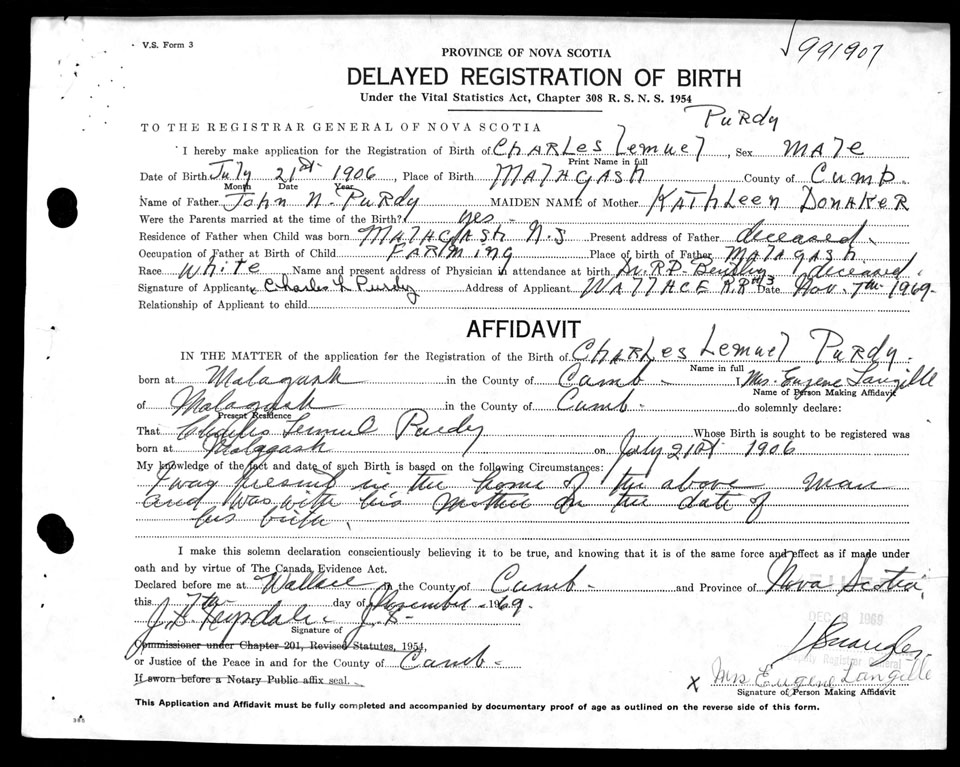 V.S. Form 3
991907
PROVINCE OF NOVA SCOTIA
DELAYED REGISTRATION OF BIRTH
Under the Vital Statistics Act, Chapter 308 R. S. N. S. 1954
Purdy
TO THE REGISTRAR GENERAL OF NOVA SCOTIA
I hereby make application for the Registration of Birth of CHARLes Lemuel, Sex MALe
Print Name in full
Date of Birth July 21st 1906, Place of Birth MALAGASH County of Cumb.
Month Date Year
Name of Father John N. Purdy MAIDEN NAME of Mother KATHLeen DONAKER
Were the Parents married at the time of the Birth? yes -
Residence of Father when Child was born MALAGASH N.S Present address of Father deceased
Occupation of Father at Birth of Child FARMING Place of birth of Father MALAGASH
Race White Name and present address of Physician in attendance at birth Dr. R.D. deceased
Signature of Applicant x Charles L Purdy Address of Applicant WALLACE RR #3 Date Nov. 7th 1969.
Relationship of Applicant to child
AFFIDAVIT
IN THE MATTER of the application for the Registration of the Birth of CHARLes Lemuel Purdy.
Name in full
born at Malagash in the County of Cumb - I Mrs. Eugene Langille
Name of Person Making Affidavit
of Malagash in the County of Cumb - do solemnly declare:
Present Residence
That Charles Lemuel Purdy Whose Birth is sought to be registered was
born at Malagash on July 21st 1906
My knowledge of the fact and date of such Birth is based on the following Circumstances:
I was present in the home of the above man
and was with his mother on the date of
his birth.
I make this solemn declaration conscientiously believing it to be true, and knowing that it is of the same force and effect as if made under
oath and by virtue of The Canada Evidence Act.
Declared before me at Wallace in the County of Cumb - and Province of Nova Scotia,
this 7th day of November - 1969.
DEC 8 1969
J.P.
Signature of
Commissioner under Chapter 201, Revised Statutes, 1954,
Deputy Registrar General
or Justice of the Peace in and for the County of Cumb -
If sworn before a Notary Public affix seal.
x Mrs Eugene Langille
Signature of Person Making Affidavit
This Application and Affidavit must be fully completed and accompanied by documentary proof of age as outlined on the reverse side of this form.
365